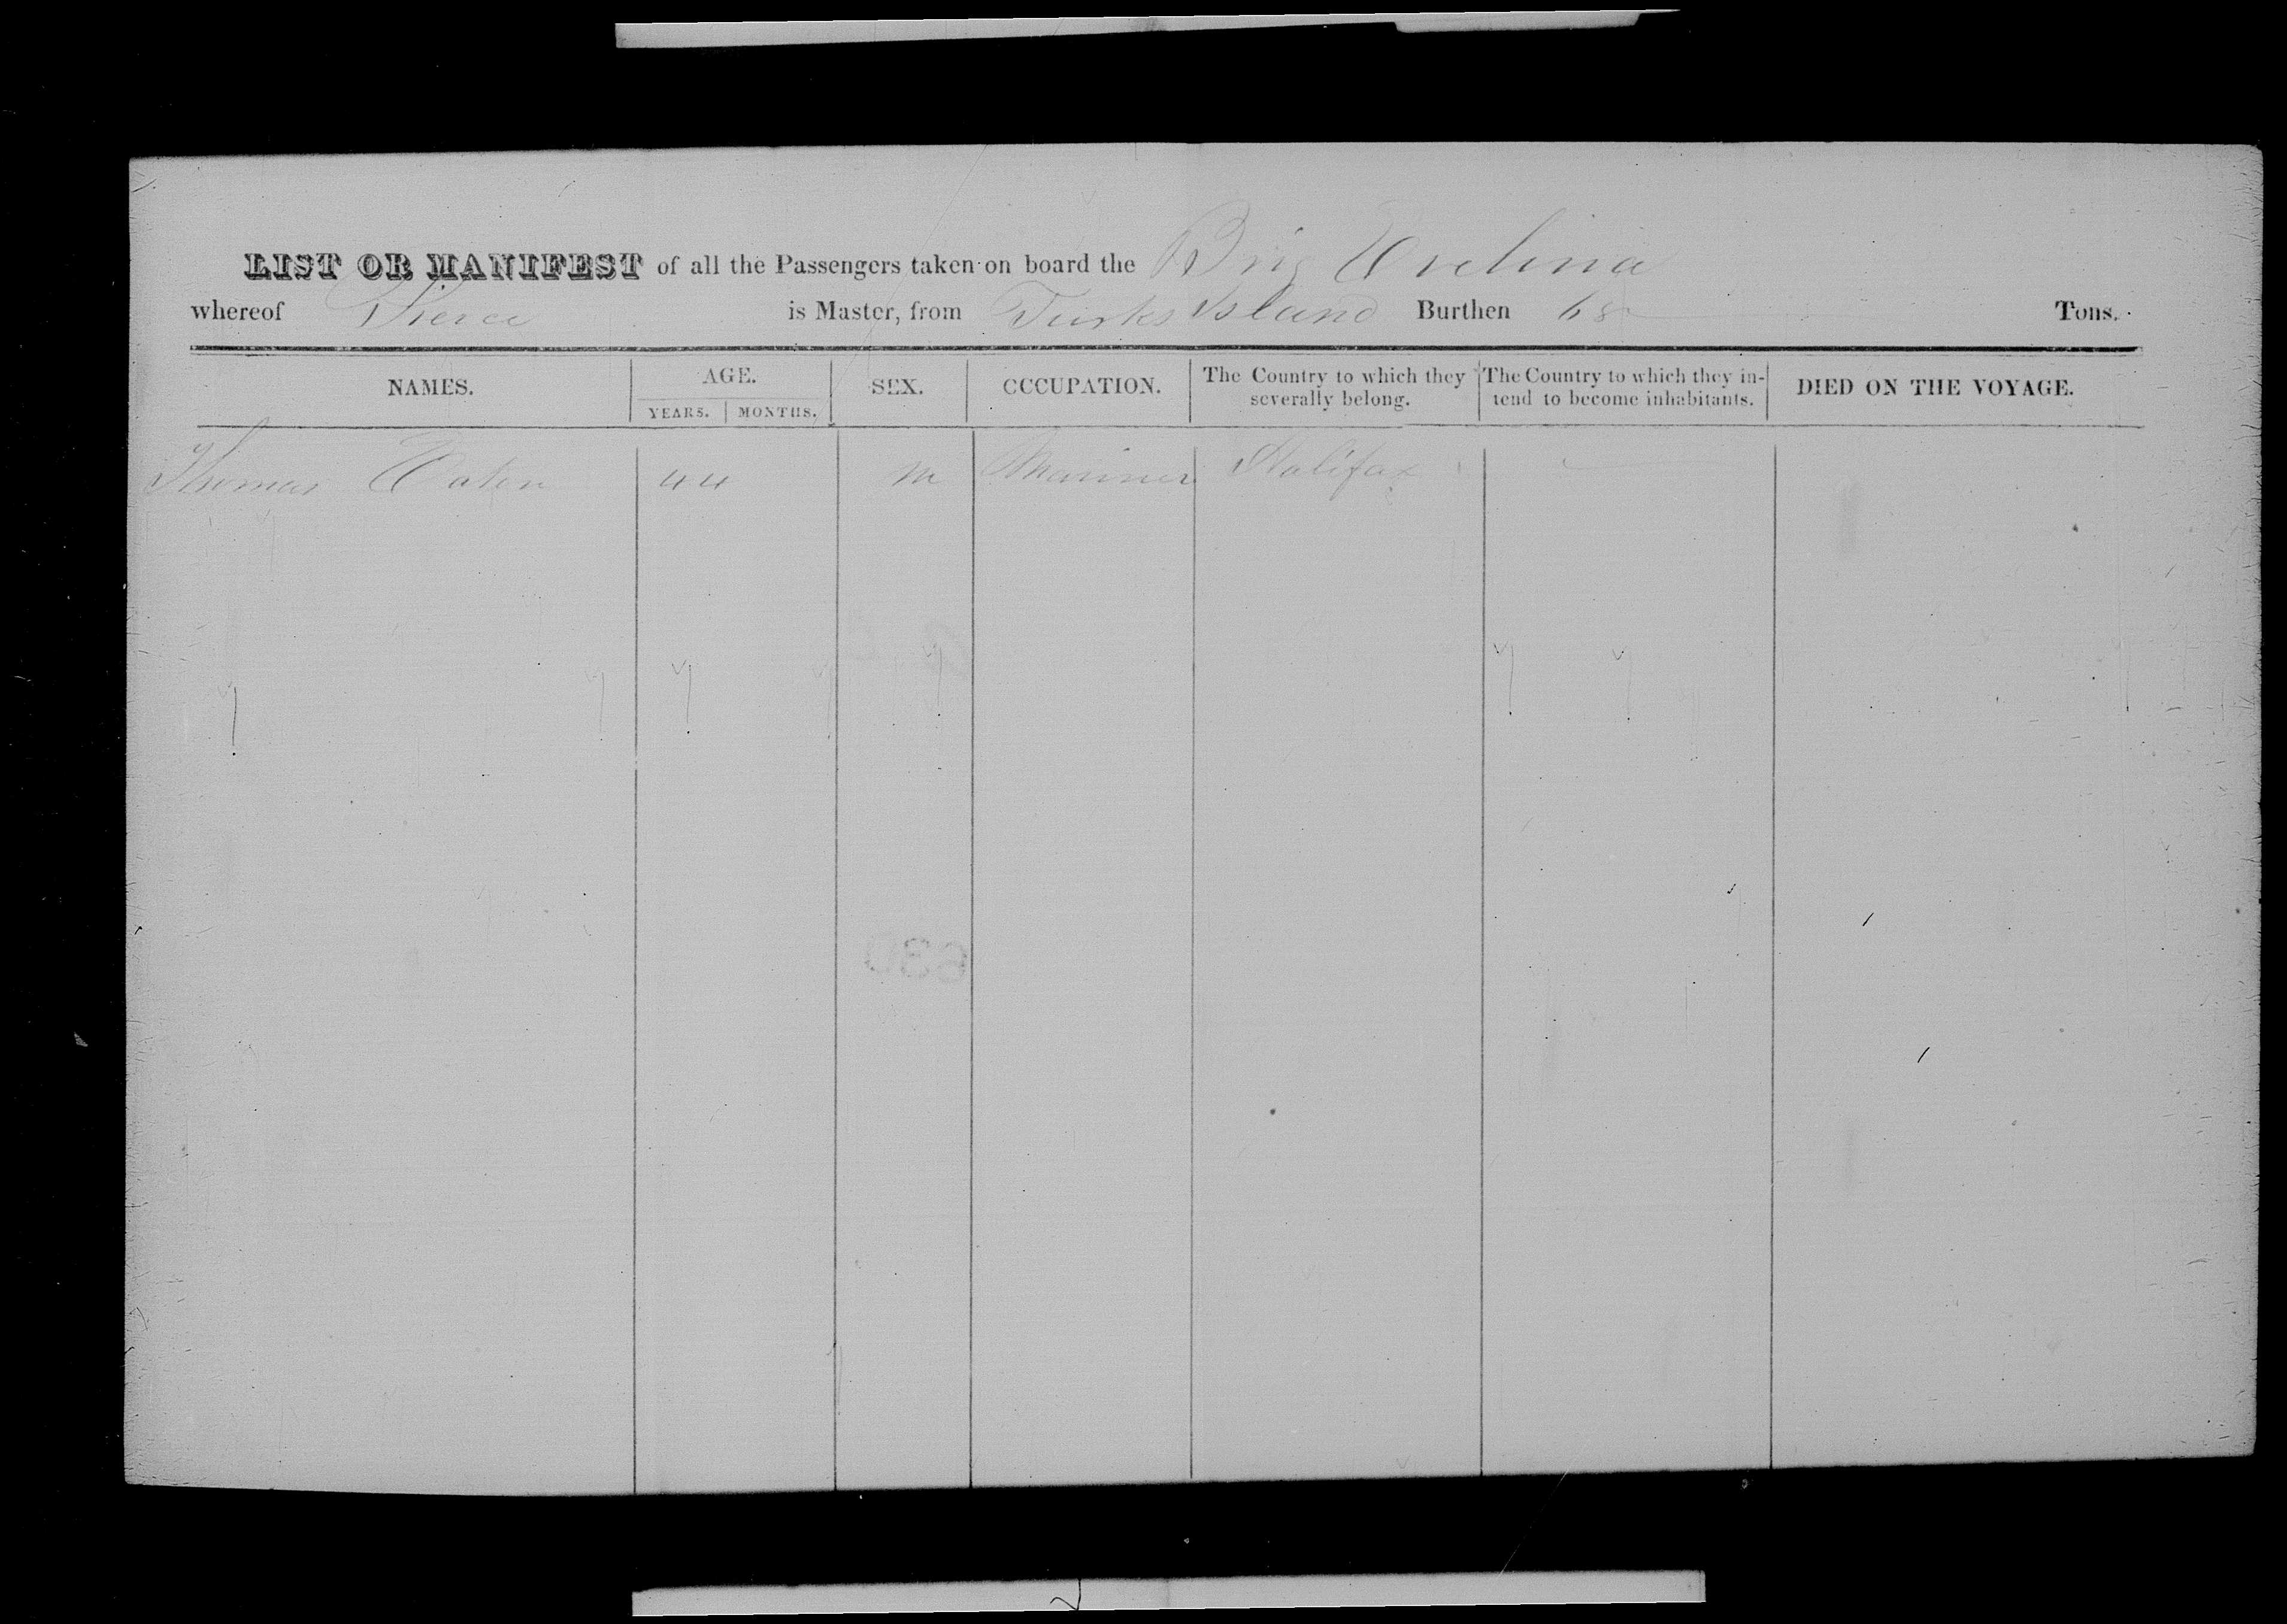 LIST OR MANIFEST of all the Passengers taken on board the Brig Evelina
whereof Pierce is Master, from Turks Island Burthen 68 Tons.
NAMES. AGE. YEARS. MONTHS. SEX. OCCUPATION. The Country to which they severally belong. The Country to which they intend to become inhabitants. DIED ON THE VOYAGE.
Thomas Eaton 44 m Mariner Halifax
630